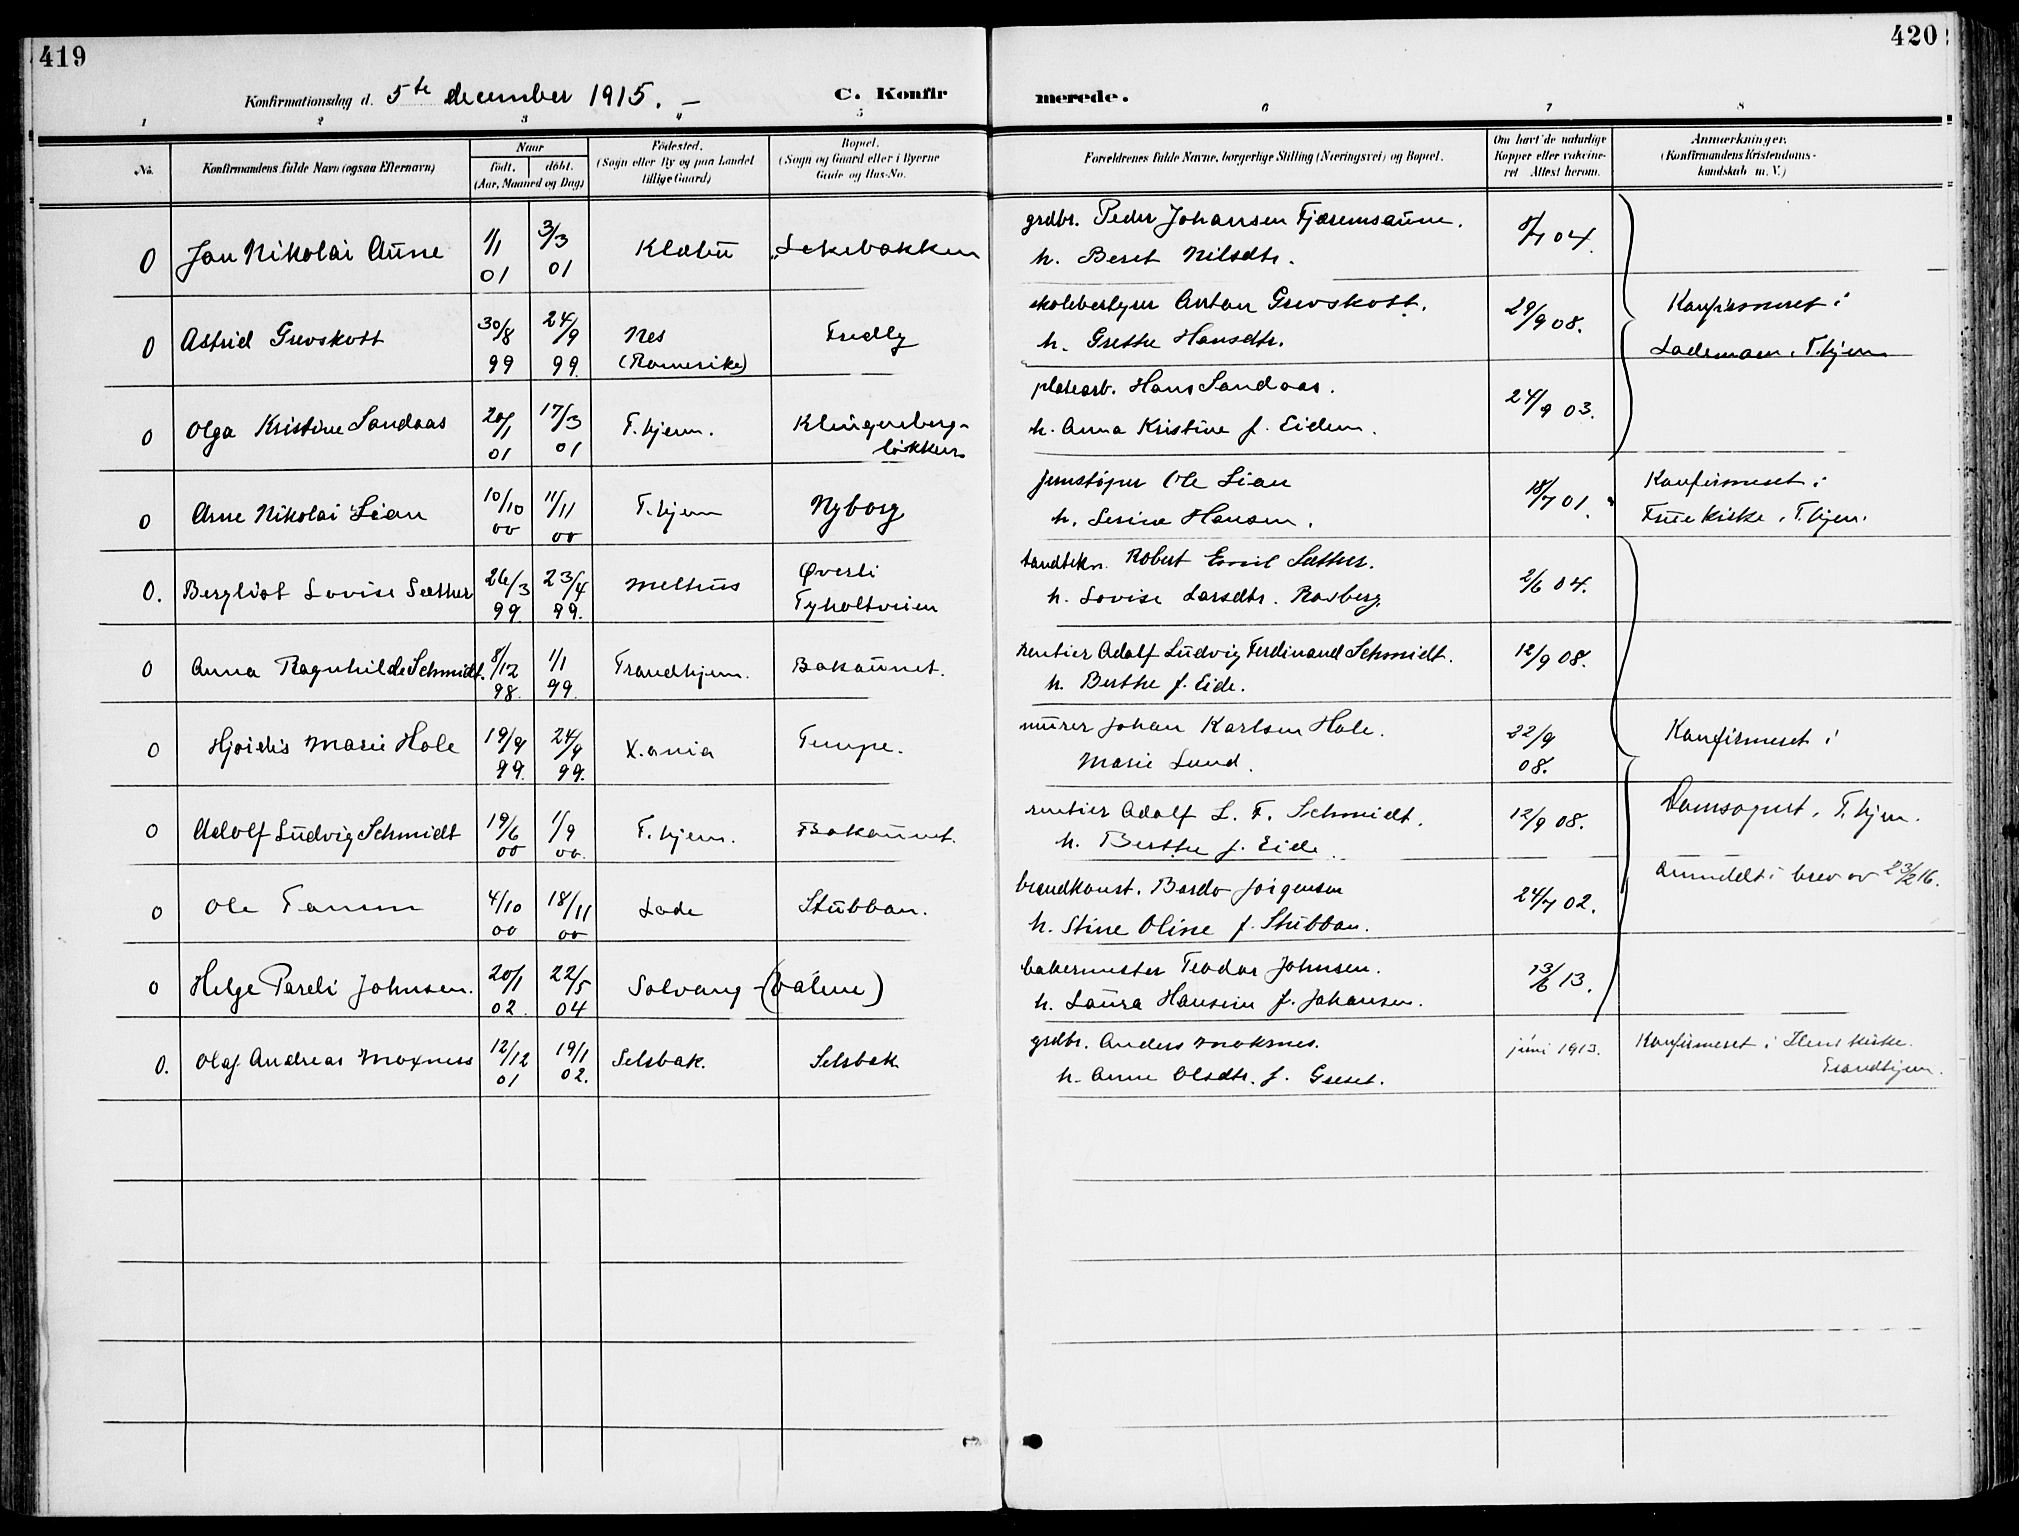 419
420
Konfirmationsdag d. 5te december 1915. –
C. Konfir
merede.
1 2 3 4 5 6 7 8
No.
Konfirmandens fulde Navn (ogsaa Efternavn)
Naar
født. døbt.
(Aar, Maaned og Dag)
Fødested.
(Sogn eller By og paa Landet
tillige Gaard)
Bopæl.
(Sogn og Gaard eller i Byerne
Gade og Hus-No.
Forældrenes fulde Navne, borgerlige Stilling (Næringsvei) og Bopæl.
Om havt de naturlige
Kopper eller vakcine-
ret Attest herom.
Anmærkninger.
(Konfirmandens Kristendoms-
kundskab m. V.)
0 Jon Nikolai Aune 1/1 01 3/3 01 Klæbu Lekebakken
grdbr. Peder Johansen Fjæremsaune.
h. Beret Nilsdtr.
04.
0 Astrid Grevskott 30/8 99 24/9 99. Nes (Romerike) Fredly
skolebestyrer Anton Grevskott.
h. Grethe Hansdtr.
29/9 08.
Konfirmeret i
Lademoen, T.hjem
0 Olga Kristine Sandaas 20/1 01 17/3 01 T.hjem. Klingenberg-
løkken
platearb. Hans Sandaas.
h. Anna Kristine f. Eidem.
24/9 03.
0 Arne Nikolai Lian 10/10 00 11/11 00 T.hjem Nyborg
jernstøper Ole Lian
h. Serine Hansen.
18/7 01.
Konfirmeret i
Frue kirke, T.hjem.
0. Bergliot Lovise Sæther 26/3 99. 23/4 99. Melhus Øverli
Tyholtveien
tandtekn. Robert Emil Sæther.
h. Lovise Larsdtr. Rosberg.
2/6 04.
0 Anna Ragnhild Schmidt. 8/12 98. 1/1 99. Trondhjem. Bakaunet.
rentier Adolf Ludvig Ferdinand Schmidt.
h. Berthe f. Eide.
12/9 08.
0 Hjørdis Marie Hole 19/9 99. 24/9 99. X.ania Tempe.
murer Johan Karlsen Hole.
Marie Lund.
22/9
08.
Konfirmeret i
0 Adolf Ludvig Schmidt 19/6 00 1/9 00. T.hjem. Bakaunet.
rentier Adolf L. F. Schmidt.
h. Berthe f. Eide.
12/9 08.
Domsognet, T.hjem.
0 Ole Tanem 4/10 00 18/11 00 Lade Stubban.
brandkonst. Bardo Jørgensen
h. Stine Oline f. Stubban.
24/7 02.
anmeldt i brev av 23/2 16.
0 Helge Pareli Johnsen. 20/1 02. 22/5 04 Solvang – (Dalene)
bakermester Teodor Johnsen.
h. Laura Hansine f. Johansen.
13/6 13.
0. Olaf Andreas Moxness 12/12 01 19/1 02. Selsbak. Selsbak
grdbr. Anders Moksnes.
h. Anne Olsdtr. f. Greset.
juni 1913.
Konfirmeret i Ilens kirke.
Trondhjem.